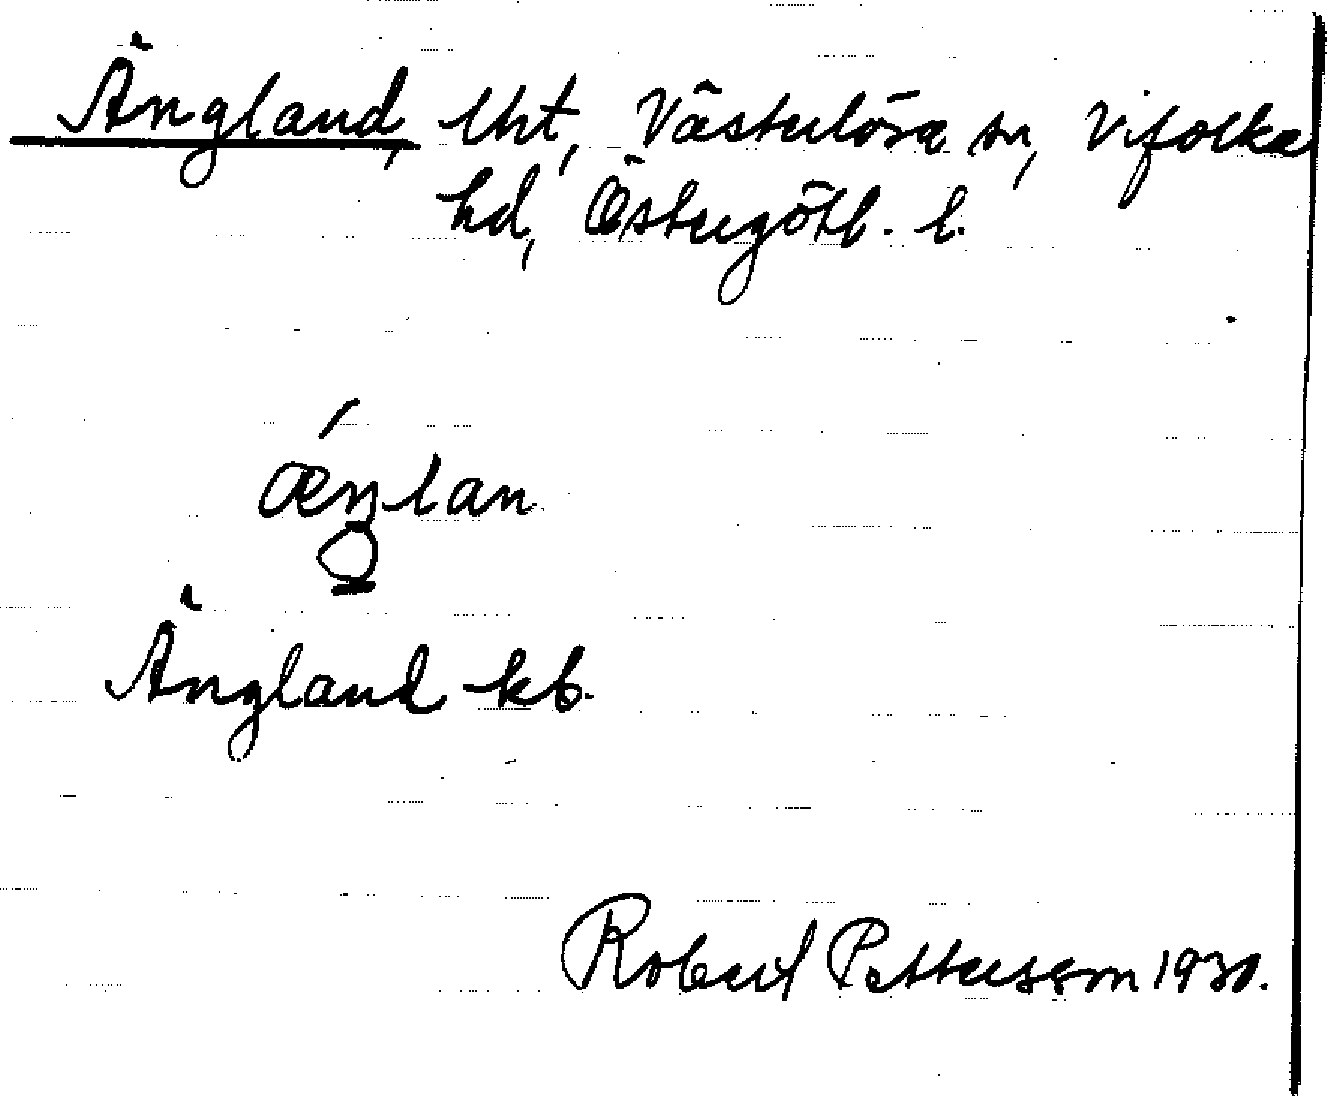 Ängland, lht, Västerlösa sn, Vifolka
hd, Östergötl. l.
ǽŋlan
Ängland kb.
Robert Pettersson 1930.